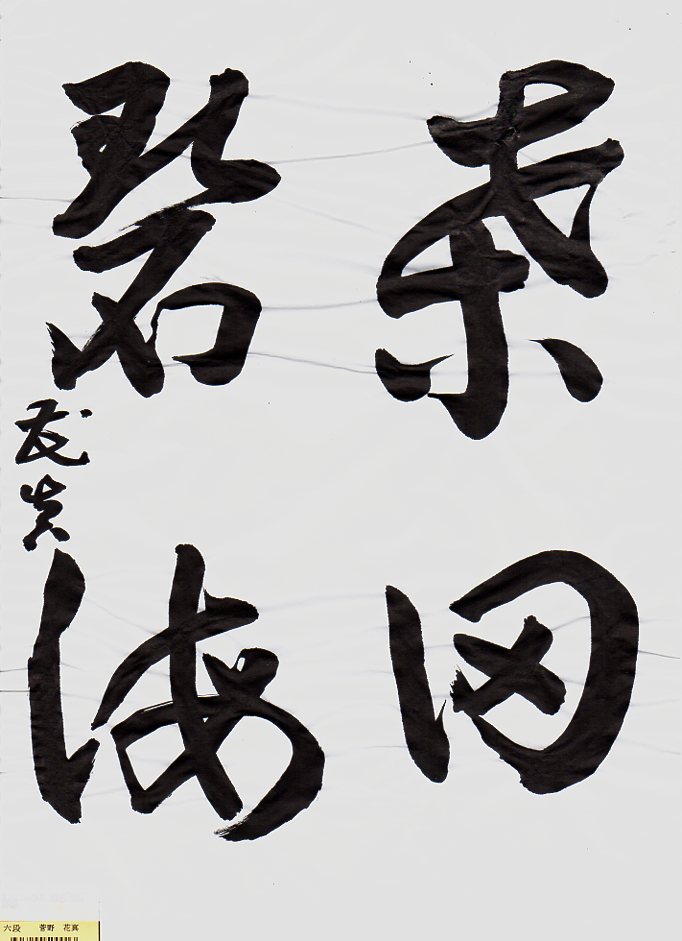 桑田
碧海
花真
六段 菅野 花真